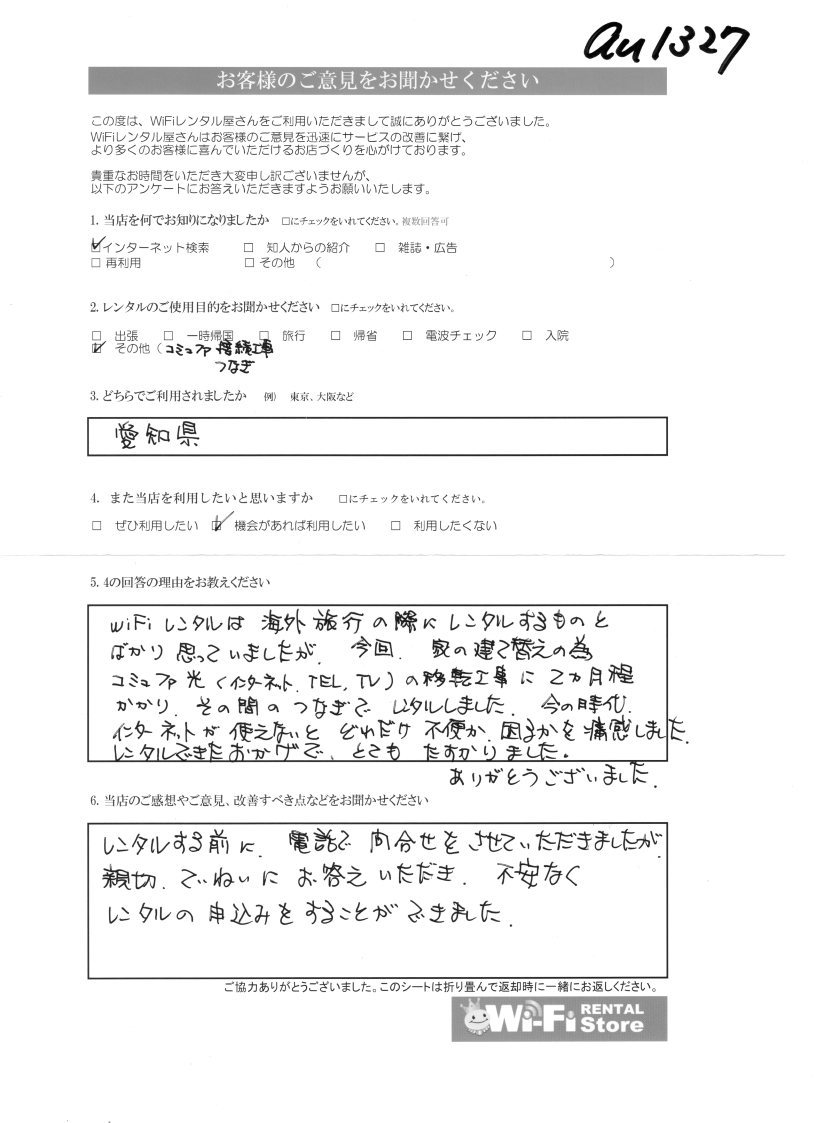 au1327
お客様のご意見をお聞かせください
この度は、WiFiレンタル屋さんをご利用いただきまして誠にありがとうございました。
WiFiレンタル屋さんはお客様のご意見を迅速にサービスの改善に繋げ、
より多くのお客様に喜んでいただけるお店づくりを心がけております。
貴重なお時間をいただき大変申し訳ございませんが、
以下のアンケートにお答えいただきますようお願いいたします。
1. 当店を何でお知りになりましたか □にチェックをいれてください。複数回答可
☑インターネット検索 □ 知人からの紹介 □ 雑誌・広告
□ 再利用 □ その他 ( )
2. レンタルのご使用目的をお聞かせください □にチェックをいれてください。
□ 出張 □ 一時帰国 □ 旅行 □ 帰省 □ 電波チェック □ 入院
☑ その他 (コミュファ 接続工事
つなぎ
3. どちらでご利用されましたか 例) 東京、大阪など
愛知県
4. また当店を利用したいと思いますか □にチェックをいれてください。
□ ぜひ利用したい ☑ 機会があれば利用したい □ 利用したくない
5. 4の回答の理由をお教えください
WiFiレンタルは 海外旅行の際にレンタルするものと
ばかり思っていましたが、今回、家の建て替えの為
コミュファ光(インターネット、TEL、TV)の移転工事に2カ月程
かかり、その間のつなぎで レンタルしました。今の時代、
インターネットが使えないと どれだけ 不便か、困るかを痛感しました。
レンタルできたおかげで、とても たすかりました。
ありがとうございました。
6. 当店のご感想やご意見、改善すべき点などをお聞かせください
レンタルする前に、電話で 問合せをさせていただきましたが
親切、ていねいにお答えいただき、不安なく
レンタルの申込みをすることができました。
ご協力ありがとうございました。このシートは折り畳んで返却時に一緒にお返しください。
Wi-Fi RENTAL Store